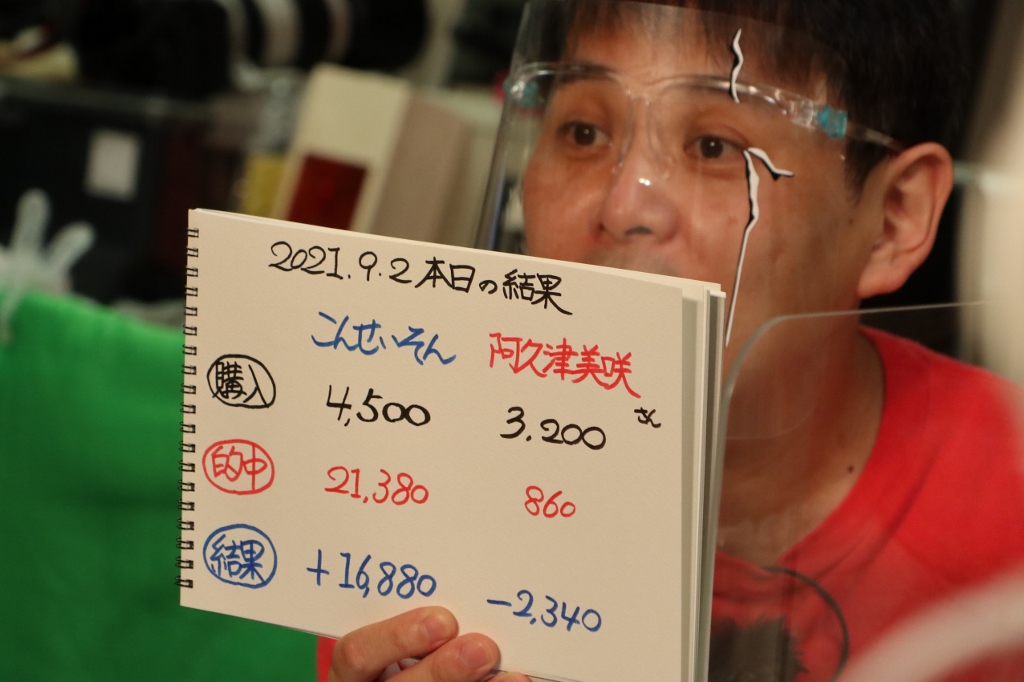 2021.9.2 本日の結果
こんせいそん 阿久津美咲さん
購入 4,500 3.200
的中 21,380 860
結果 +16,880 -2,340